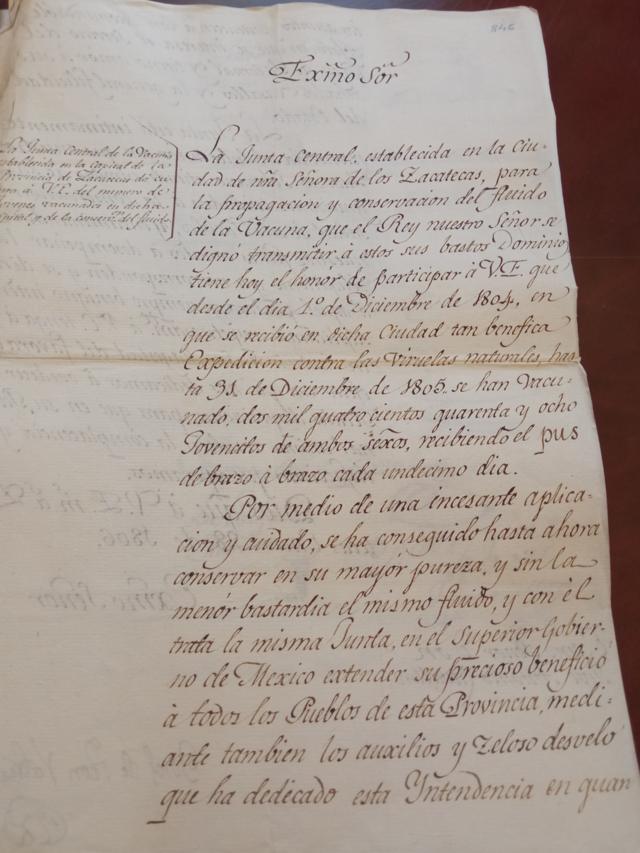 846
Exṁo Sōr
La Junta Central de la Vacuna
establecida en la capital de la
Provincia de Zacatecas dá cu
a V.E. del numero de
Jovenes vacunados en dicha
Capital y de la conserv.on del fluido
La Junta Central, establecida en la Ciu-
dad de nr̄a Señora de los Zacatecas, para
la propagacion y conservacion del fluido
de la Vacuna, que el Rey nuestro Señor se
dignó transmitir à estos sus bastos Dominios
tiene hoy el honór de participar à V.E. que
desde el dia 1.º de Diciembre de 1804, en
que se recibió en dicha Ciudad tan benefica
Expedicion contra las Viruelas naturales, has-
ta 31 de Diciembre de 1805 se han Vacu-
nado, dos mil quatrocientos quarenta y ocho
Jovencitos de ambos sexôs, recibiendo el pus
de brazo à brazo cada undecimo dia.
Por medio de una incesante aplica-
cion y cuidado, se ha conseguido hasta ahora
conservar en su mayór pureza, y sin la
menór bastardia el mismo fluido, y con él
trata la misma Junta, en el Superior Gobier-
no de Mexico extender su precioso beneficio
à todos los Pueblos de esta Provincia, medi-
ante tambien los auxilios y zeloso desvelo
que ha dedecado esta Yntendencia en quan